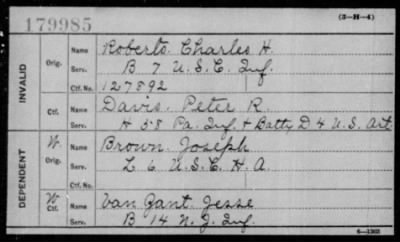 179985
(3-H-4)
INVALID
Orig.
Name Roberts. Charles H.
Serv. B 7 U.S.C. Inf.
Ctf. No. 127892
Ctf.
Name Davis. Peter R.
Serv. H 58 Pa. Inf. + Batty D 4 U.S. Art.
DEPENDENT
W. Orig.
Name Brown. Joseph
Serv. L 6 U.S.C.H.A.
W Ctf.
Name Van Zant. Jesse
Serv. B 14 N.J. Inf.